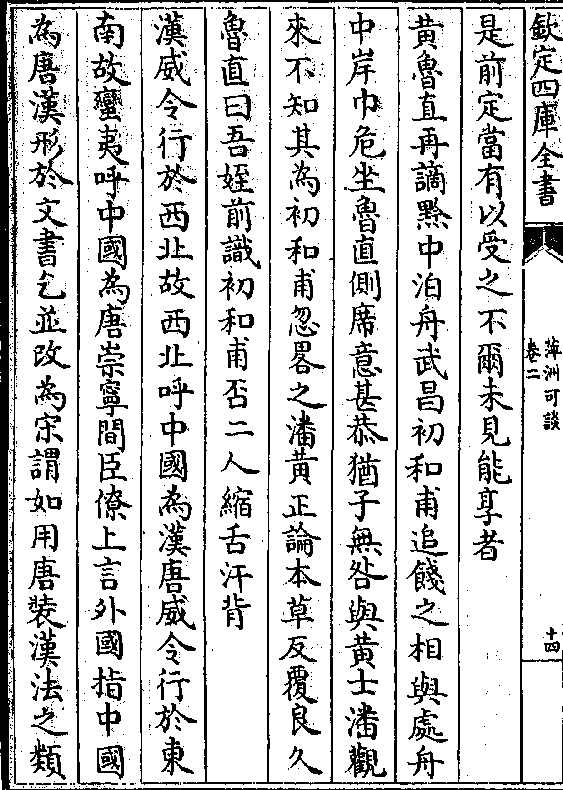 欽定四庫全書
萍洲可談
卷二
十四
是前定當有以受之不爾未見能享者
黃魯直再謫黔中泊舟武昌初和甫追餞之相與處舟
中岸巾危坐魯直側席意甚恭猶子無咎與黃士潘觀
來不知其為初和甫忽畧之潘黃正論本草反覆良久
魯直曰吾姪前識初和甫否二人縮舌汗背
漢威令行於西北故西北呼中國為漢唐威令行於東
南故蠻夷呼中國為唐崇寧間臣僚上言外國指中國
為唐漢形於文書乞並改為宋謂如用唐裝漢法之類